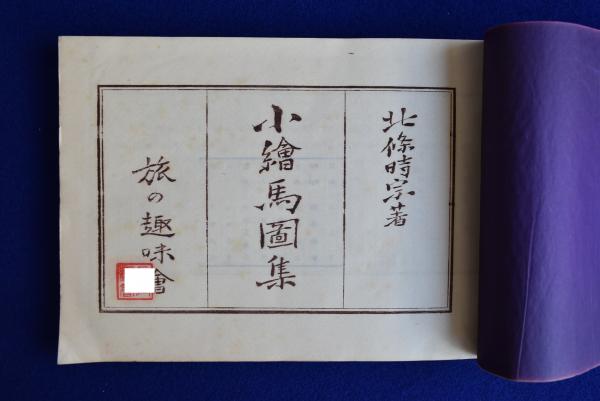 北條時宗著
小繪馬圖集
旅の趣味會